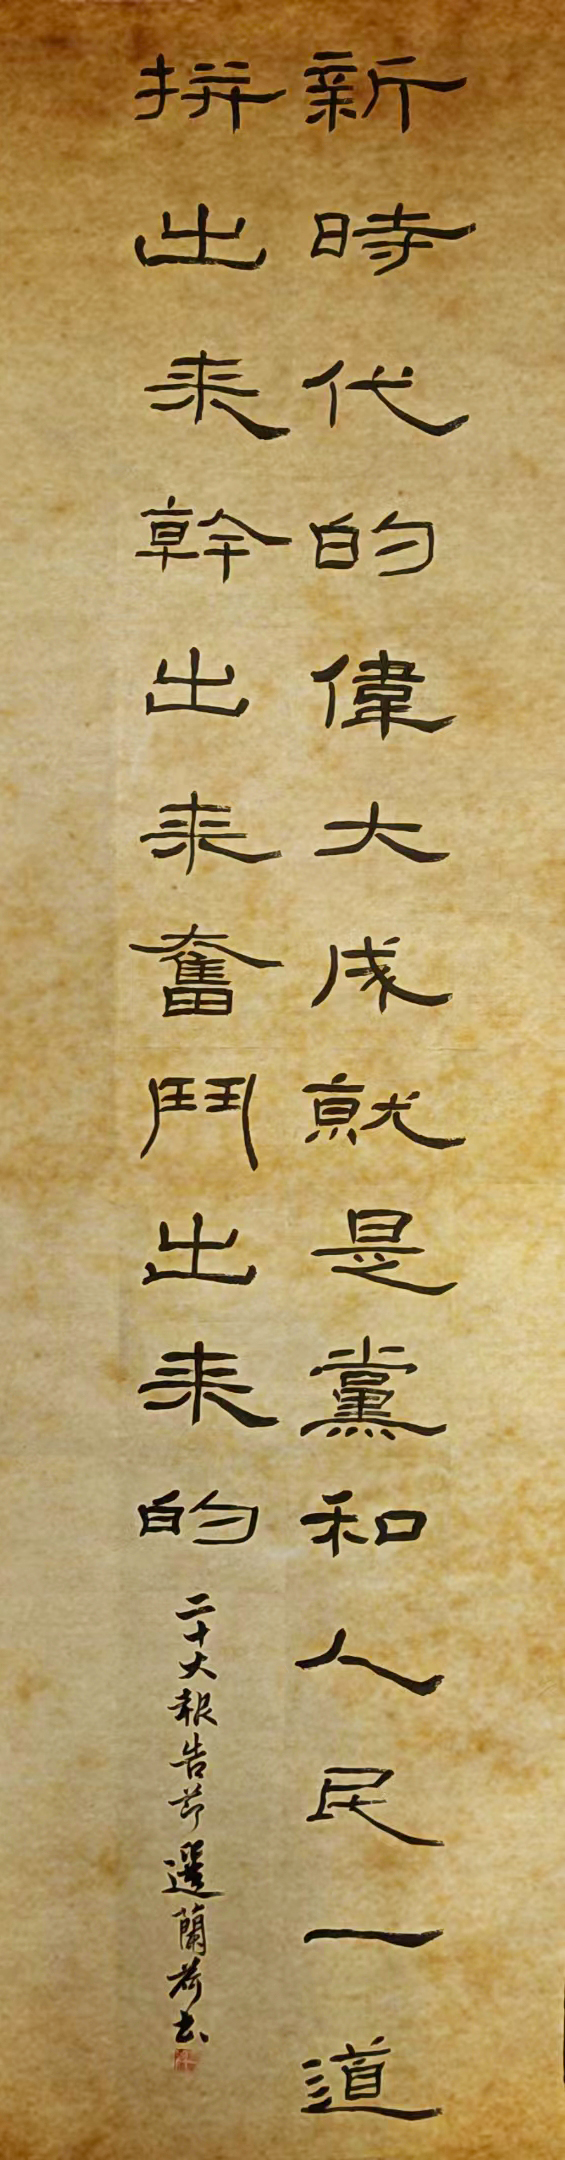 新時代的偉大成就是黨和人民一道
拼出来幹出来奮鬥出来的
二十大報告節選蘭荷书